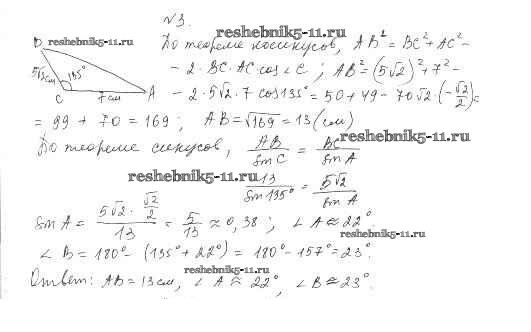 №3.
reshebnik5-11.ru
B reshebnik5-11.ru По теореме косинусов, AB² = BC² + AC² -
5√2 см 135° - 2 · BC · AC · cos ∠C ; AB² = (5√2)² + 7² -
C 7 см A - 2 · 5√2 · 7 cos 135° = 50 + 49 - 70√2 · (-√2/2) =
= 99 + 70 = 169 ; AB = √169 = 13 (см)
reshebnik5-11.ru
По теореме синусов, AB/sin C = BC/sin A
reshebnik5-11.ru
13/sin 135° = 5√2/sin A
sin A = (5√2 · √2/2)/13 = 5/13 ≈ 0,38 ; ∠A ≈ 22°
reshebnik5-11.ru
∠B = 180° - (135° + 22°) = 180° - 157° = 23°.
reshebnik5-11.ru
Ответ: AB = 13 см, ∠A ≈ 22°, ∠B ≈ 23°.